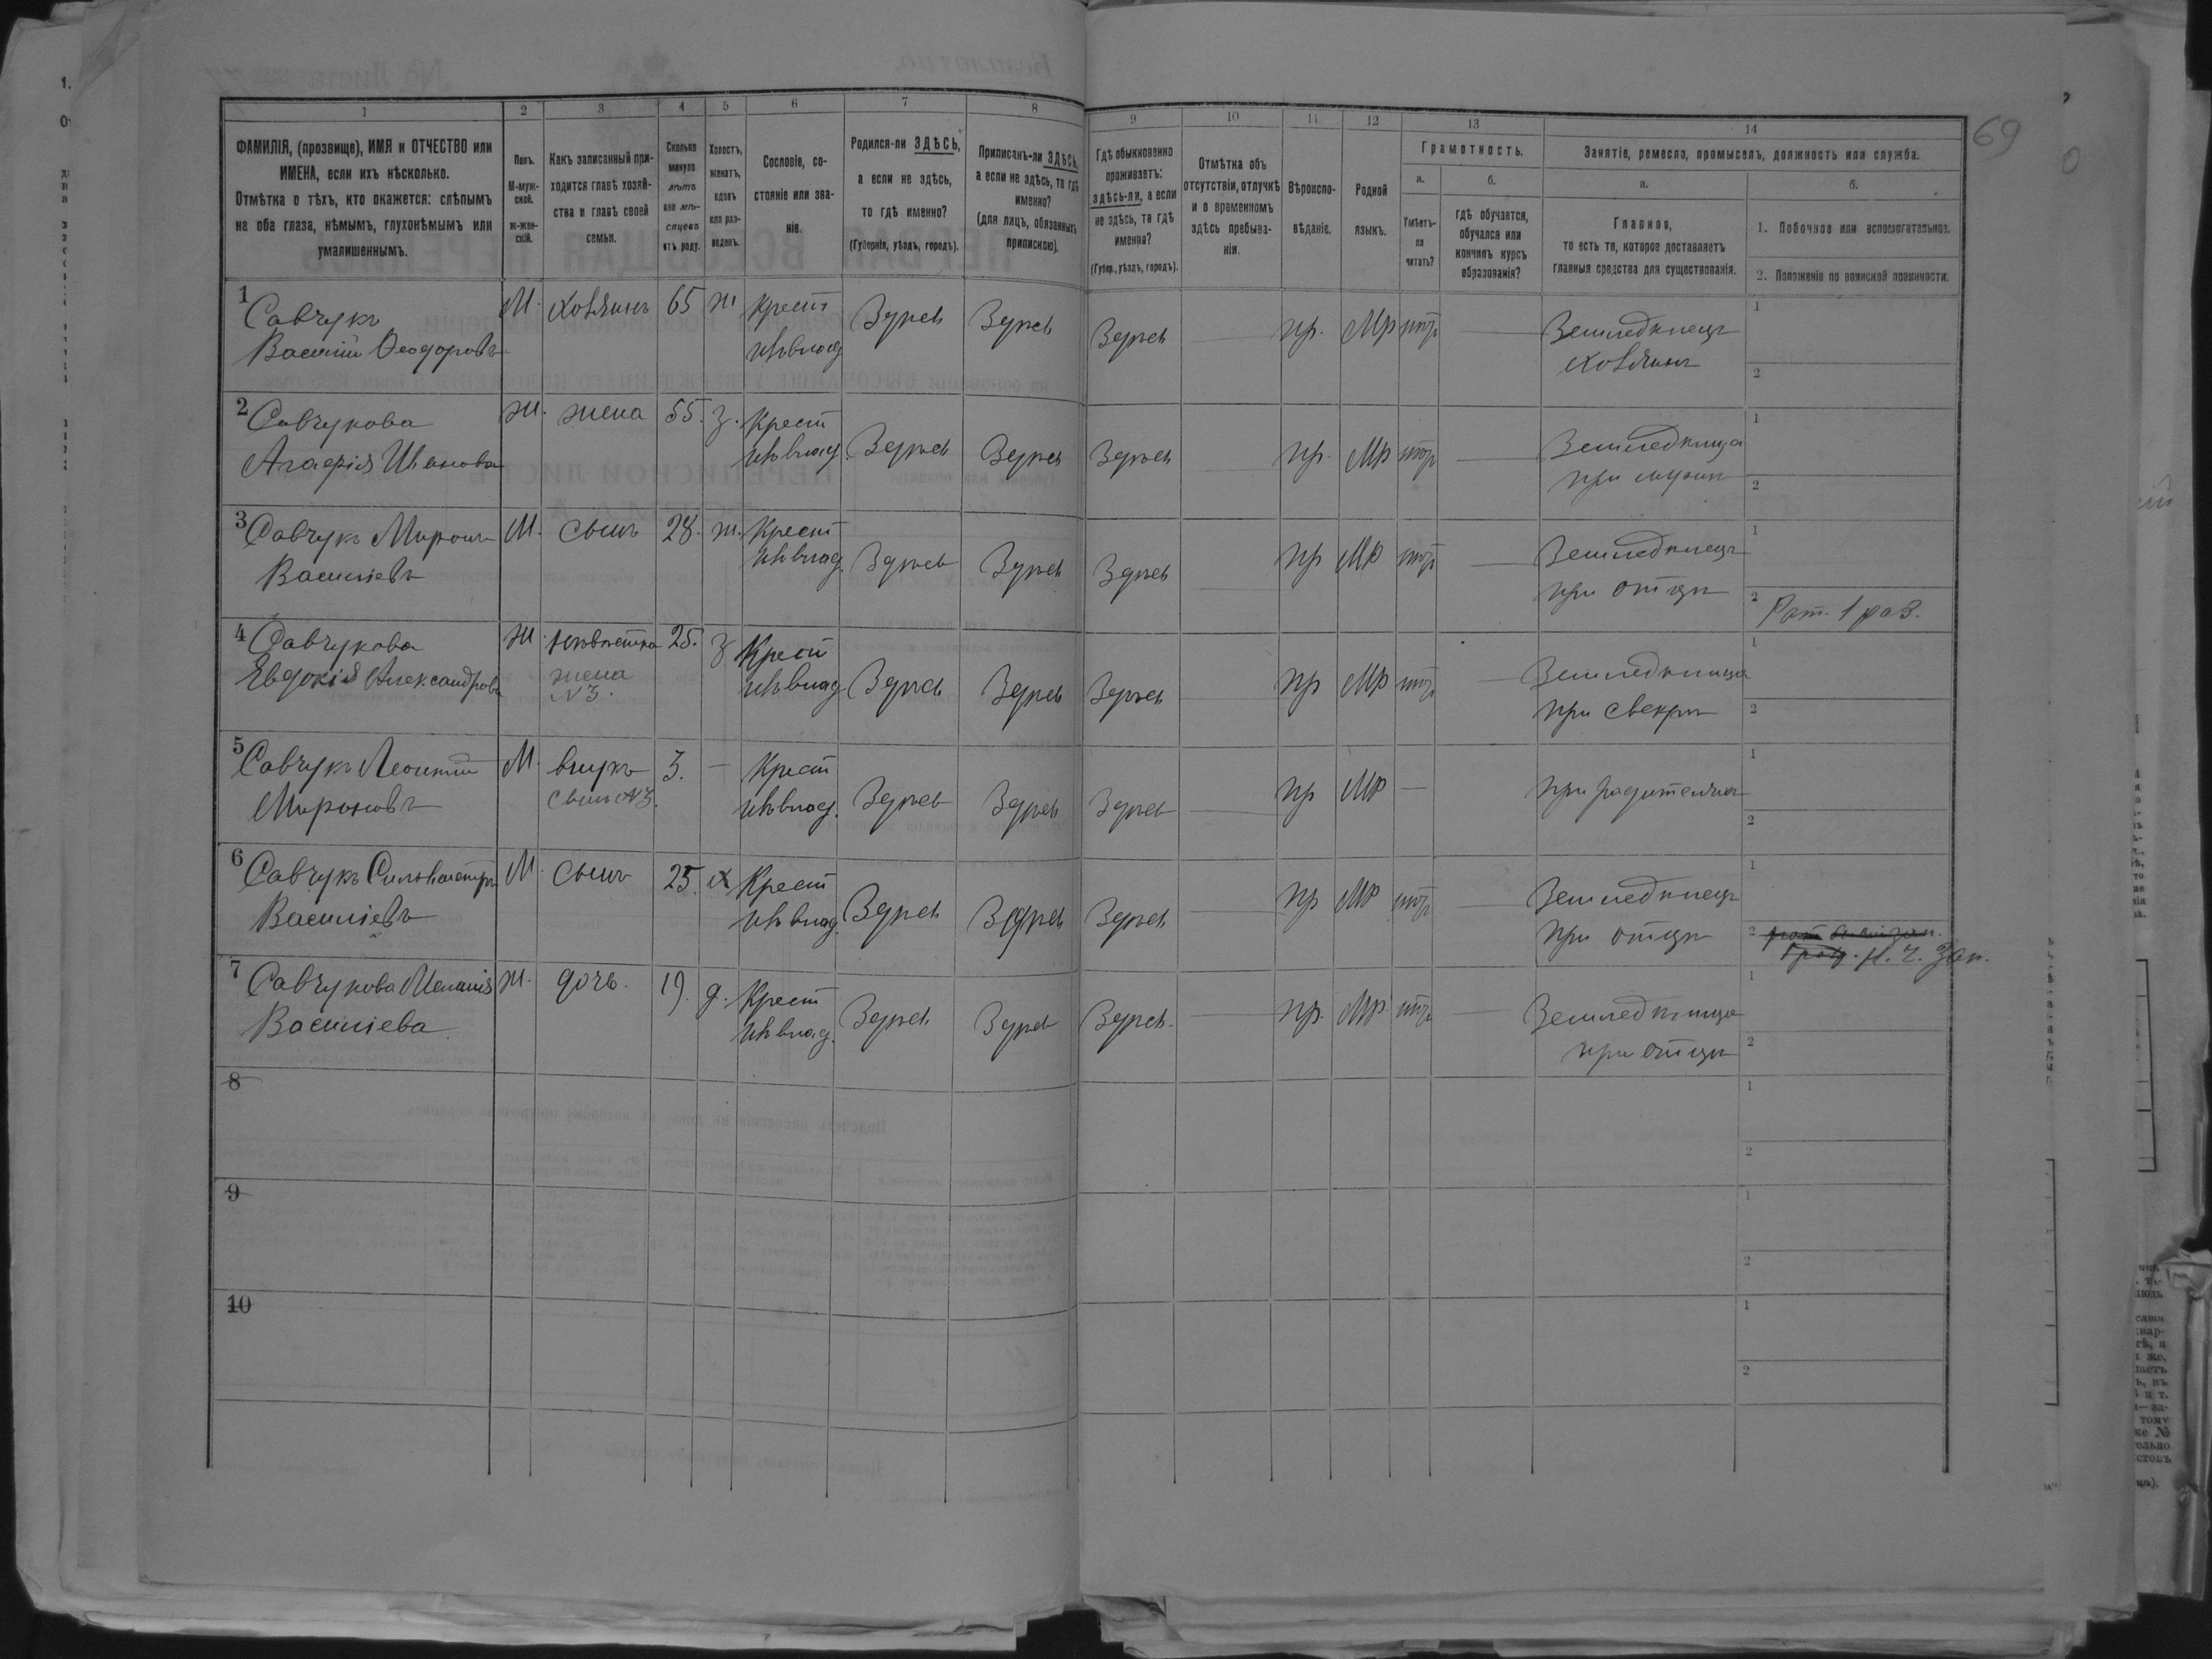 69
1 2 3 4 5 6 7 8 9 10 11 12 13 14
ФАМИЛІЯ, (прозвище), ИМЯ и ОТЧЕСТВО или
ИМЕНА, если ихъ нѣсколько.
Отмѣтка о тѣхъ, кто окажется: слѣпымъ
на оба глаза, нѣмымъ, глухонѣмымъ или
умалишеннымъ.
Полъ.
М-муж-
ской.
ж-жен-
скій.
Какъ записанный при-
ходится главѣ хозяй-
ства и главѣ своей
семьи.
Сколько
минуло
лѣтъ
или мѣ-
сяцевъ
отъ роду.
Холостъ,
женатъ,
вдовъ
или раз-
веденъ.
Сословіе, со-
стояніе или зва-
ніе.
Родился-ли ЗДѢСЬ,
а если не здѣсь,
то гдѣ именно?
(Губернія, уѣздъ, городъ).
Приписанъ-ли ЗДѢСЬ,
а если не здѣсь, то гдѣ
именно?
(для лицъ, обязанныхъ
припискою).
Гдѣ обыкновенно
проживаетъ:
здѣсь-ли, а если
не здѣсь, то гдѣ
именно?
(Губер., уѣздъ, городъ).
Отмѣтка объ
отсутствіи, отлучкѣ
и о временномъ
здѣсь пребыва-
ніи.
Вѣроиспо-
вѣданіе.
Родной
языкъ.
Грамотность.
а.
Умѣетъ-
ли
читать?
б.
гдѣ обучается,
обучался или
кончилъ курсъ
образованія?
Занятіе, ремесло, промыселъ, должность или служба.
а.
Главное,
то есть то, которое доставляетъ
главныя средства для существованія.
б.
1. Побочное или вспомогательное.
2. Положеніе по воинской повинности.
1 Савчукъ М. хозяинъ 65 ж крест Здѣсь Здѣсь Здѣсь пр. Мр нѣтъ Земледѣлецъ 1
Василій Феодоровъ хозяинъ 2
2 Савчукова ж. жена 55. з. Крест Здѣсь Здѣсь Здѣсь пр. Мр нѣтъ Земледѣлица 1
Агафія Иванова при мужѣ 2
3 Савчукъ Миронъ М. сынъ 28. ж. Крест Здѣсь Здѣсь Здѣсь пр Мр нѣтъ Земледѣлецъ 1
Васильевъ при отцѣ 2 Рат. 1 раз.
4 Савчукова ж. невѣстка 25. з Крест Здѣсь Здѣсь Здѣсь пр Мр нѣтъ Земледѣлица 1
Евдокія Александрова жена при свекрѣ 2
N 3.
5 Савчукъ Леонтій М. внукъ 3. — Крест Здѣсь Здѣсь Здѣсь пр Мр — при родителяхъ 1
Мироновъ сынъ N 3. 2
6 Савчукъ Сильвестръ М. сынъ 25. х Крест Здѣсь Здѣсь Здѣсь пр Мр нѣтъ Земледѣлецъ 1
Васильевъ при отцѣ 2
Н. Ч. Зап.
7 Савчукова Меланія ж. дочь. 19. д. Крест Здѣсь Здѣсь Здѣсь пр. Мр. нѣтъ Земледѣлица 1
Васильева при отцѣ 2
8 1
2
9 1
2
10 1
2